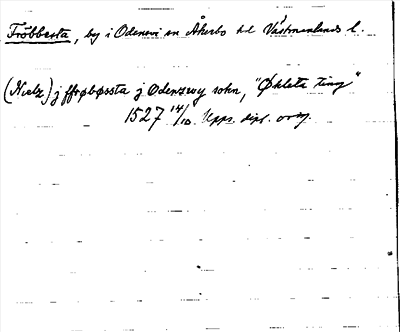 Fröbbesta, by i Odensvi sn Åkerbo hd Västmanlands l.
(Nielz) j ffrøbøssta j Odenzwy sokn, "Økleta ting"
1527 14/10 Upps. dipl. orig.